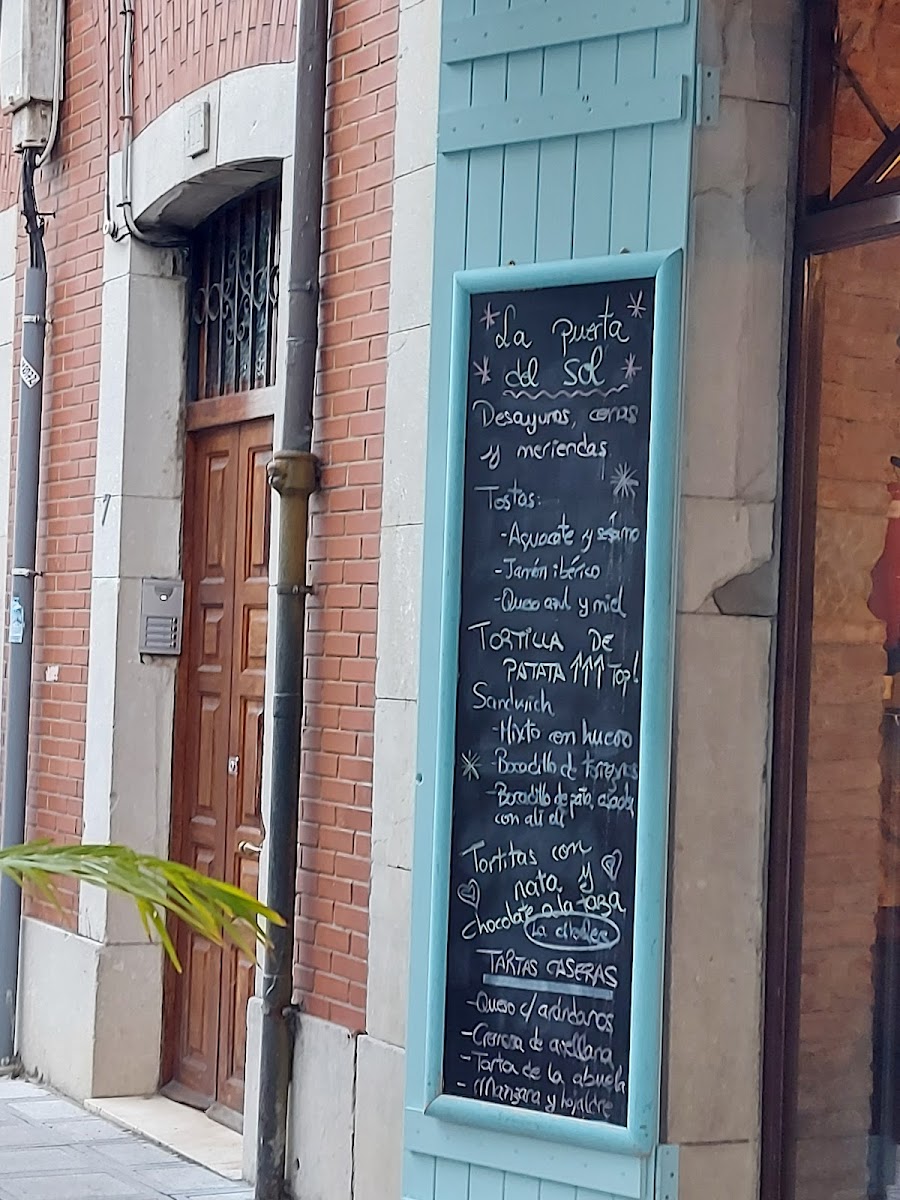 La puerta
del sol
Desayunos, cenas
y meriendas
Tostas:
- Aguacate y sésamo
- Jamón ibérico
- Queso azul y miel
TORTILLA DE
PATATA ↑↑↑ TOP!
Sandwich
- Mixto con huevo
- Bocadillo de
- Bocadillo de
con ali oli
Tortitas con
nata y
chocolate a la taza
La
TARTAS CASERAS
- Queso c/ arándanos
- Cremosa de avellana
- Tarta de la abuela
- Manzana y hojaldre